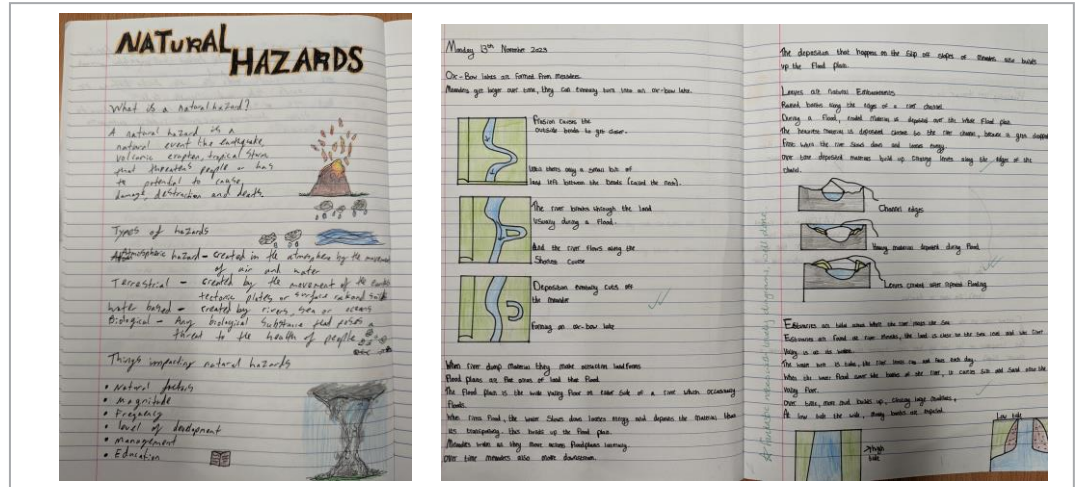 NATURAL
HAZARDS
What is a natural hazard?
A natural hazard is a
natural event like earthquake,
volcanic eruption, tropical storm
that threatens people or has
te potential to cause
damage, destruction and death.
Types of hazards
Atmospheric hazard - created in the atmosphere by the movement
of air and water
Terrestrial - created by the movement of the earths
tectonic plates or surface rock and soil
Water based - created by rivers, sea or oceans
Biological - Any biological substance that poses a
threat to the health of people
Things impacting natural hazards
• Natural factors
• Magnitude
• Frequency
• level of development
• management
• Education
Monday 13th November 2023
Ox-Bow lakes are format from meanders.
Meanders get larger over time, they can evenually turn into an ox-bow lake.
Erosion causes the
outside bends to get closer.
Until theres only a small bit of
land left between the bends (called the neck).
The river breaks through the land
Usually during a flood.
And the river flows along the
Shortest Course
Deposition evenually cuts off
the meander
Forming an ox-bow lake
When river dump material they make landforms
Flood plains are flat areas of land that flood
The flood plain is the wide valley floor on either side of a river which occasionally
floods.
When river flood, the water slows down looses energy and deposits the material thats
its transporting. this builds up the flood plain.
Meanders as they move across floodplains
Over time meanders also move downstream.
The deposition that happens on the slip off slopes of meanders also builds
up the flood plain.
Levees are natural Embankments
Raised banks along the edges of a river channel
During a flood, eroded material is deposited over the whole flood plain.
The heaviest material is deposited closest to the river channel, because it gets dropped
first when the river slows down and looses energy.
Over time deposited material builds up, creating levees along the edges of the
channel.
Channel edges
Heavy material deposited during flood
Levees created after repeated flooding
Fantastic notes with handy diagrams, well done.
Estuaries are tidal areas where the river meets the sea
Estuaries are found at river mouths, the land is close to the sea level and the river
valley is at its widest
The water here is tidal, the river level rises and falls each day.
When the water floods over the banks of the river, it carries silt and sand onto the
valley floor.
Over time, more mud builds up, creating large mudflats,
At low tide the wide, muddy banks are exposed.
high
tide
Low tide